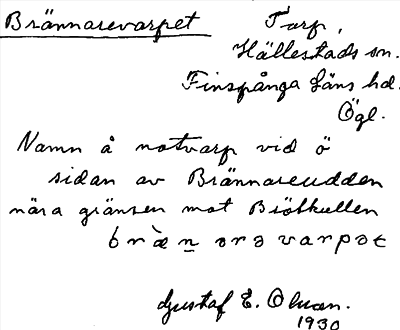 Brännarevarpet Torp,
Hällestads sn.
Finspånga läns hd.
Ögl.
Namn å notvarp vid ö
sidan av Brännareudden
nära gränsen mot Björkullen
Gustaf E. Olson.
1930